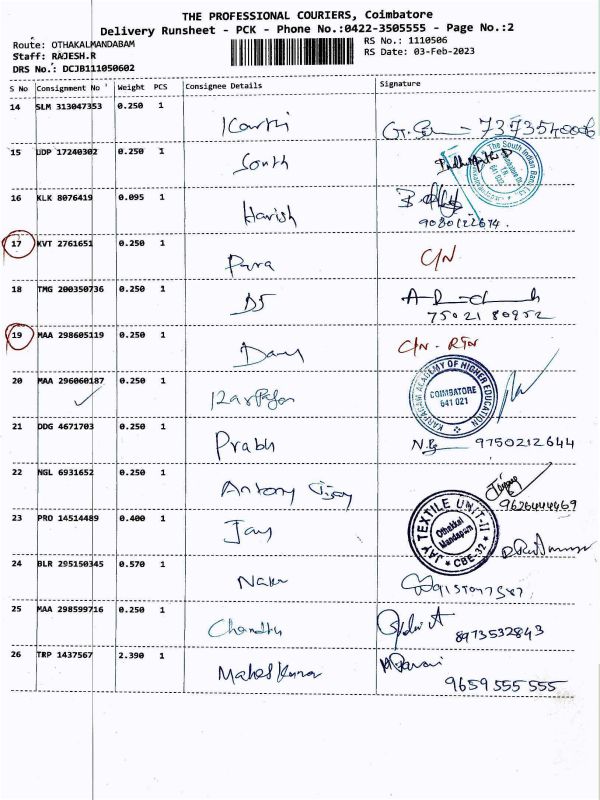 THE PROFESSIONAL COURIERS, Coimbatore
Delivery Runsheet - PCK - Phone No.:0422-3505555 - Page No.:2
Route: OTHAKALMANDABAM
RS No.: 1110506
Staff: RAJESH.R
RS Date: 03-Feb-2023
DRS No.: DCJB111050602
S No Consignment No Weight PCS Consignee Details Signature
14 SLM 313047353 0.250 1
Karthi
15 UDP 17240302 0.250 1
South
The South Indian Bank
16 KLK 8076419 0.095 1
Harish
9080122674.
17 KVT 2761651 0.250 1
Pura C/N
18 TMG 200350736 0.250 1
DJ
7502180952
19 MAA 298605119 0.250 1
C/N - RTN
20 MAA 296060187 0.250 1
KARPAGAM ACADEMY OF HIGHER EDUCATION
COIMBATORE
641 021
21 DDG 4671703 0.250 1
Prabh 9750212644
22 NGL 6931652 0.250 1
Antony Vijay
9626444469
23 PRO 14514489 0.400 1
Jay
JAY TEXTILE UNIT-II
Othakkal
Mandapam
CBE-32
24 BLR 295150345 0.570 1
25 MAA 298599716 0.250 1
8973532843
26 TRP 1437567 2.390 1
Mahes Kumar
9659555555